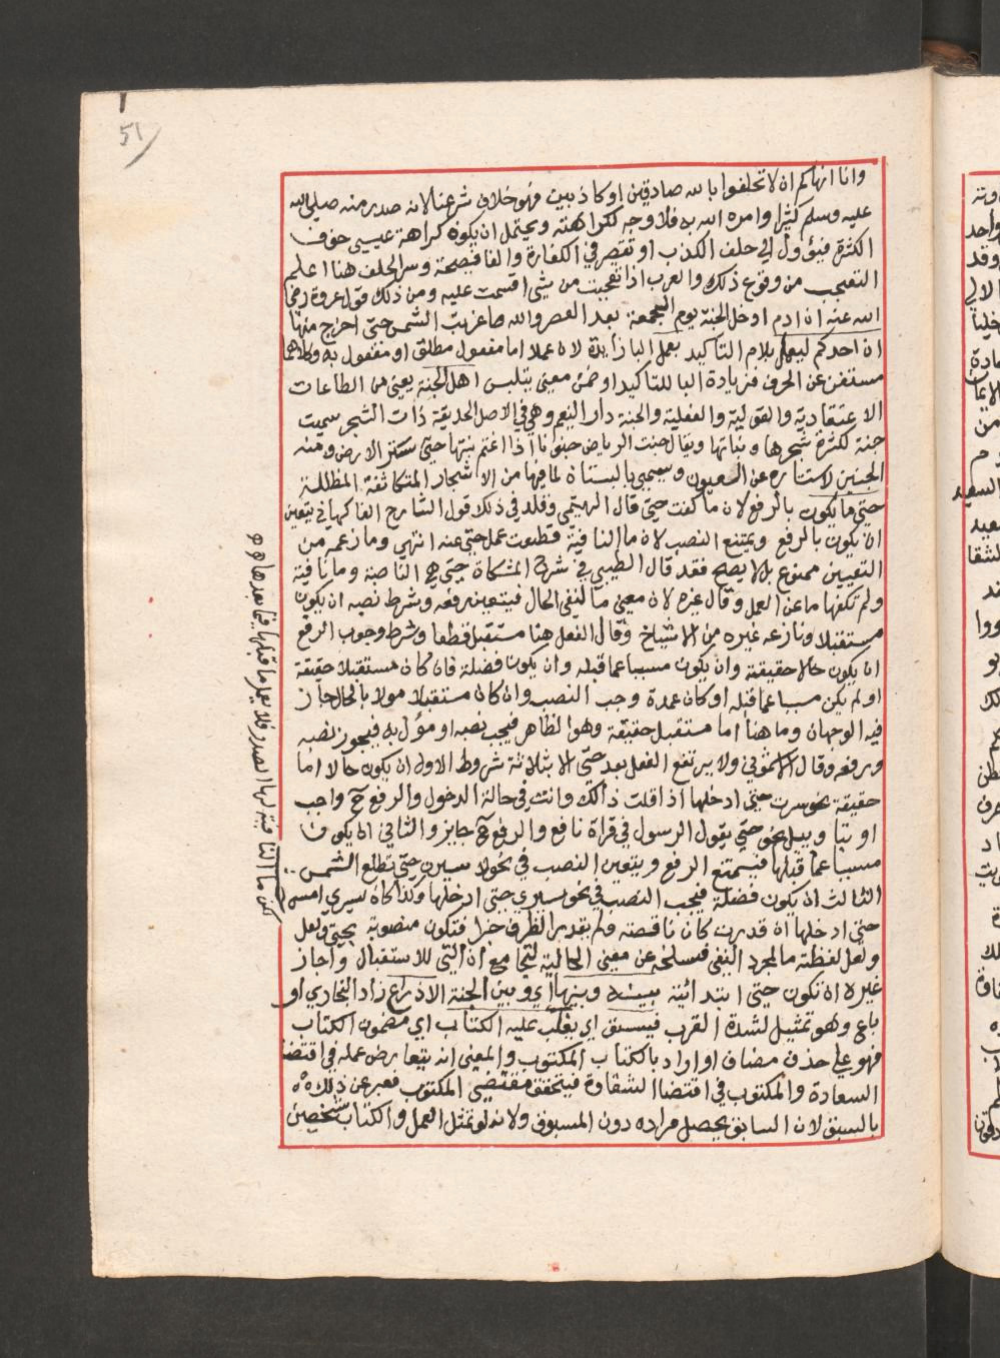 51
وانا انهاكم ان لا تحلفوا بالله صادقين او كاذبين فهو خلاف شرعنا لانه صدر منه صلى الله
عليه وسلم كثيرا وامره الله به فلا وجه لكراهته ويحتمل ان يكون كراهة عيسى خوف
الكثرة فيؤول الى حلف الكذب او تقصير في الكفارة والفا فصيحة وسر الحلف هنا اعلم
التعجب من وقوع ذلك والعرب اذا تعجبت من شي اقسمت عليه ومن ذلك قول عروة رضي
الله عنه ان ادم ادخل الجنة يوم الجمعة بعد العصر والله ما غربت الشمس حتى اخرج منها
ان احدكم ليعمل بلام التاكيد بعمل البا زائدة لان عملا اما مفعول مطلق او مفعول به وكلاهما
مستغن عن الحرف فزيادة البا للتاكيد او ضمن معنى يتلبس اهل الجنة يعني من الطاعات
الاعتقادية والقولية والفعلية والجنة دار النعيم وهي في الاصل الحديقة ذات الشجر سميت
جنة لكثرة شجرها ونباتها ويقال جنت الرياض جنونا اذا اعتم نبتها حتى ستر الارض ومنه
الجنين لاستتاره عن العيون وسمي بالبستان لما فيها من الاشجار المتكاثفة المظللة
حتى ما يكون بالرفع لان ما كفت حتى قال الهيتمي وقلد في ذلك قول الشارح الفاكهاني يتعين
ان يكون بالرفع ويمتنع النصب لان ما النافية قطعت عمل حتى عنه انتهى وما زعمه من
التعيين ممنوع بل لا يصح فقد قال الطيبي في شرح المشكاة حتى هي الناصبة وما نافية
ولم تكفها ما عن العمل وقال غيره لان معنى ما لنفي الحال فيتعين رفعه وشرط نصبه ان يكون
مستقبلا ونازعه غيره من الاشياخ وقال الفعل هنا مستقبل قطعا وشرط وجوب الرفع
ان يكون حالا حقيقة وان يكون مسببا عما قبله وان يكون فضلة فان كان مستقبلا حقيقة
او لم يكن مسببا عما قبله او كان عمدة وجب النصب وان كان مستقبلا مولا بالحال جاز
فيه الوجهان وما هنا اما مستقبل حقيقة وهو الظاهر فيجب نصبه او مؤل به فيجوز نصبه
ورفعه وقال الاشموني ولا يرتفع الفعل بعد حتى الا بثلاثة شروط الاول ان يكون حالا اما
حقيقة نحو سرت حتى ادخلها اذا قلت ذلك وانت في حالة الدخول والرفع ح واجب
او تا ويل نحو حتى يقول الرسول في قراة نافع والرفع ح جايز والثاني ان يكون
مسببا عما قبلها فيمتنع الرفع ويتعين النصب في نحو لا سيرن حتى تطلع الشمس
الثالث ان يكون فضلة فيجب النصب في نحو سيري حتى ادخلها وكذا كان سيري امس
حتى ادخلها ان قدرت كان ناقصة ولم يقدر الظرف خبرا فتكون منصوبة بحتى ولعل
ولعل لفظة ما لمجرد النفي فسلخه عن معنى الحالية لتجامع ان التي للاستقبال واجاز
غيره ان تكون حتى ابتدائية بينه وبينها اي وبين الجنة الا ذراع زاد البخاري او
باع وهو تمثيل لشدة القرب فيسبق اي يغلب عليه الكتاب اي مضمون الكتاب
فهو على حذف مضاف او اراد بالكتاب المكتوب والمعنى انه يتعارض عمله في اقتضا
السعادة والمكتوب في اقتضا الشقاوة فيتحقق مقتضى المكتوب فعبر عن ذلك
بالسبق لان السابق يحصل مراده دون المسبوق ولانه لو تمثل العمل والكتاب شخصين
لكن ما النافية لها الصدر فلا يعمل ما قبلها فيما بعدها